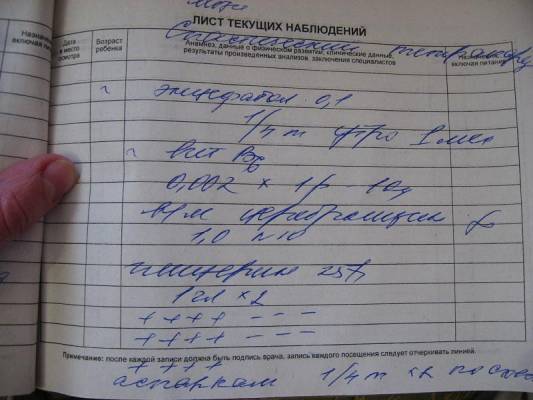 ЛИСТ ТЕКУЩИХ НАБЛЮДЕНИЙ
Назначен
включая пит
Дата
и место
осмотра
Возраст
ребенка
Анамнез, данные о физическом развитии, клинические данные,
результаты произведенных анализов, заключения специалистов
включая питание
Спастический тетрапарез
энцефабол 0,1
1/4 т утро 1 мес
вит В6
0,002 х 1р - 10д
в/м церебролизин
1,0 №10
глицерин 25%
1 чл х 2
++++ - - -
++++ - - -
Примечание: после каждой записи должна быть подпись врача, запись каждого посещения следует отчеркивать линией.
++++
аспаркам 1/4 т х2 по схеме